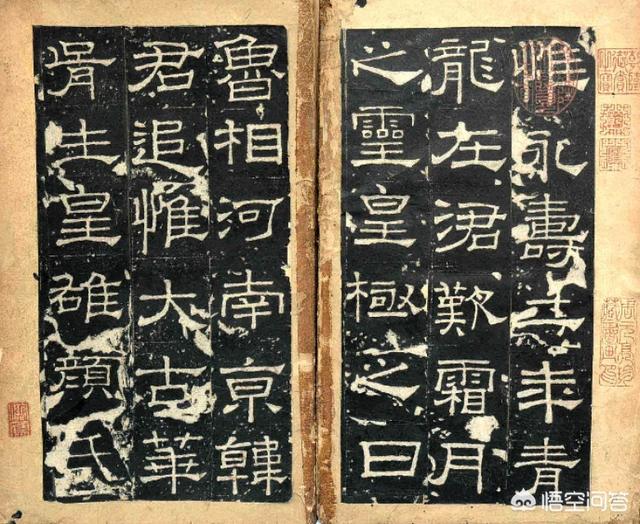 惟永壽二年青
龍在涒歎霜月
之靈皇極之日
魯相河南京韓
君追惟大古華
胥生皇雄顏氏
悟空问答